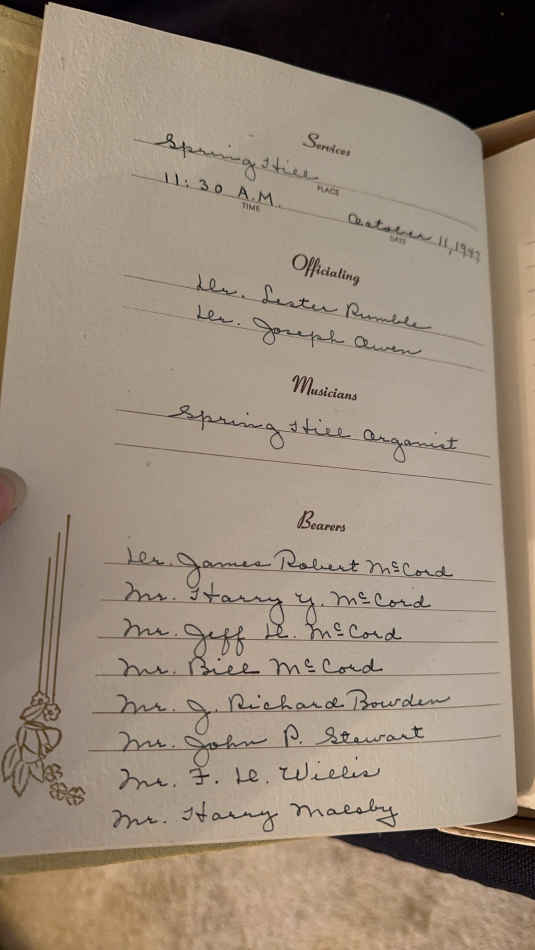 Services
Spring Hill
PLACE
11:30 A.M.
TIME
October 11, 1947
DATE
Officiating
Dr. Lester Rumble
Dr. Joseph Owen
Musicians
Spring Hill Organist
Bearers
Dr. James Robert McCord
Mr. Harry Y. McCord
Mr. Jeff D. McCord
Mr. Bill McCord
Mr. J. Richard Bowden
Mr. John P. Stewart
Mr. F. D. Willis
Mr. Harry